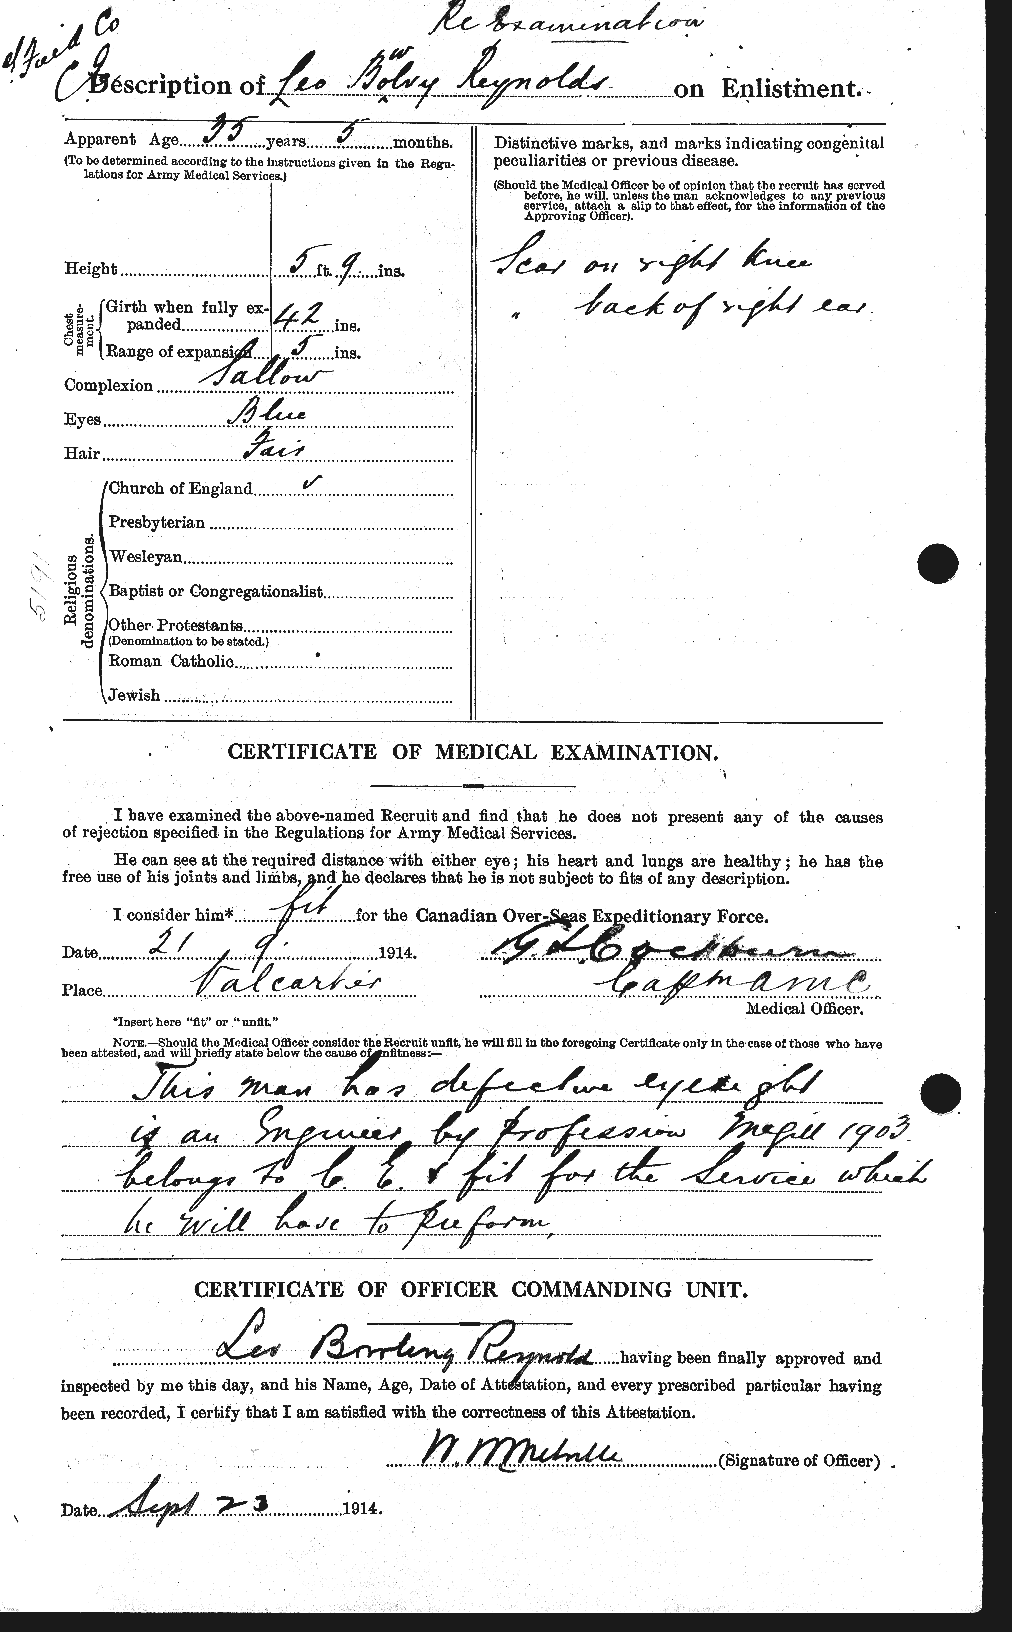 Re Examination
Field Co
Description of Leo Bowlvy Reynolds on Enlistment.
Apparent Age 35 years 5 months.
(To be determined according to the instructions given in the Regu-
lations for Army Medical Services.)
Height 5 ft. 9 ins.
Chest measure-ment.
Girth when fully ex-
panded 42 ins.
Range of expansion 5 ins.
Complexion Sallow
Eyes Blue
Hair Fair
Religious denominations.
Church of England ✓
Presbyterian
Wesleyan
Baptist or Congregationalist
Other Protestants
(Denomination to be stated.)
Roman Catholic
Jewish
5191
Distinctive marks, and marks indicating congenital
peculiarities or previous disease.
(Should the Medical Officer be of opinion that the recruit has served
before, he will, unless the man acknowledges to any previous
service, attach a slip to that effect, for the information of the
Approving Officer).
Scar on right knee
" back of right ear.
CERTIFICATE OF MEDICAL EXAMINATION.
I have examined the above-named Recruit and find that he does not present any of the causes
of rejection specified in the Regulations for Army Medical Services.
He can see at the required distance with either eye; his heart and lungs are healthy; he has the
free use of his joints and limbs, and he declares that he is not subject to fits of any description.
I consider him* fit for the Canadian Over-Seas Expeditionary Force.
Date 21 9. 1914. Cockburn
Place Valcartier Capt AMC
Medical Officer.
*Insert here "fit" or "unfit."
NOTE.—Should the Medical Officer consider the Recruit unfit, he will fill in the foregoing Certificate only in the case of those who have
been attested, and will briefly state below the cause of unfitness:—
This man has defective eyesight
is an Engineer by profession Megill 1903
belongs to C. E. & fit for the Service which
he will have to preform,
CERTIFICATE OF OFFICER COMMANDING UNIT.
Leo Bowling Reynold having been finally approved and
inspected by me this day, and his Name, Age, Date of Attestation, and every prescribed particular having
been recorded, I certify that I am satisfied with the correctness of this Attestation.
W. (Signature of Officer)
Date Sept 23 1914.